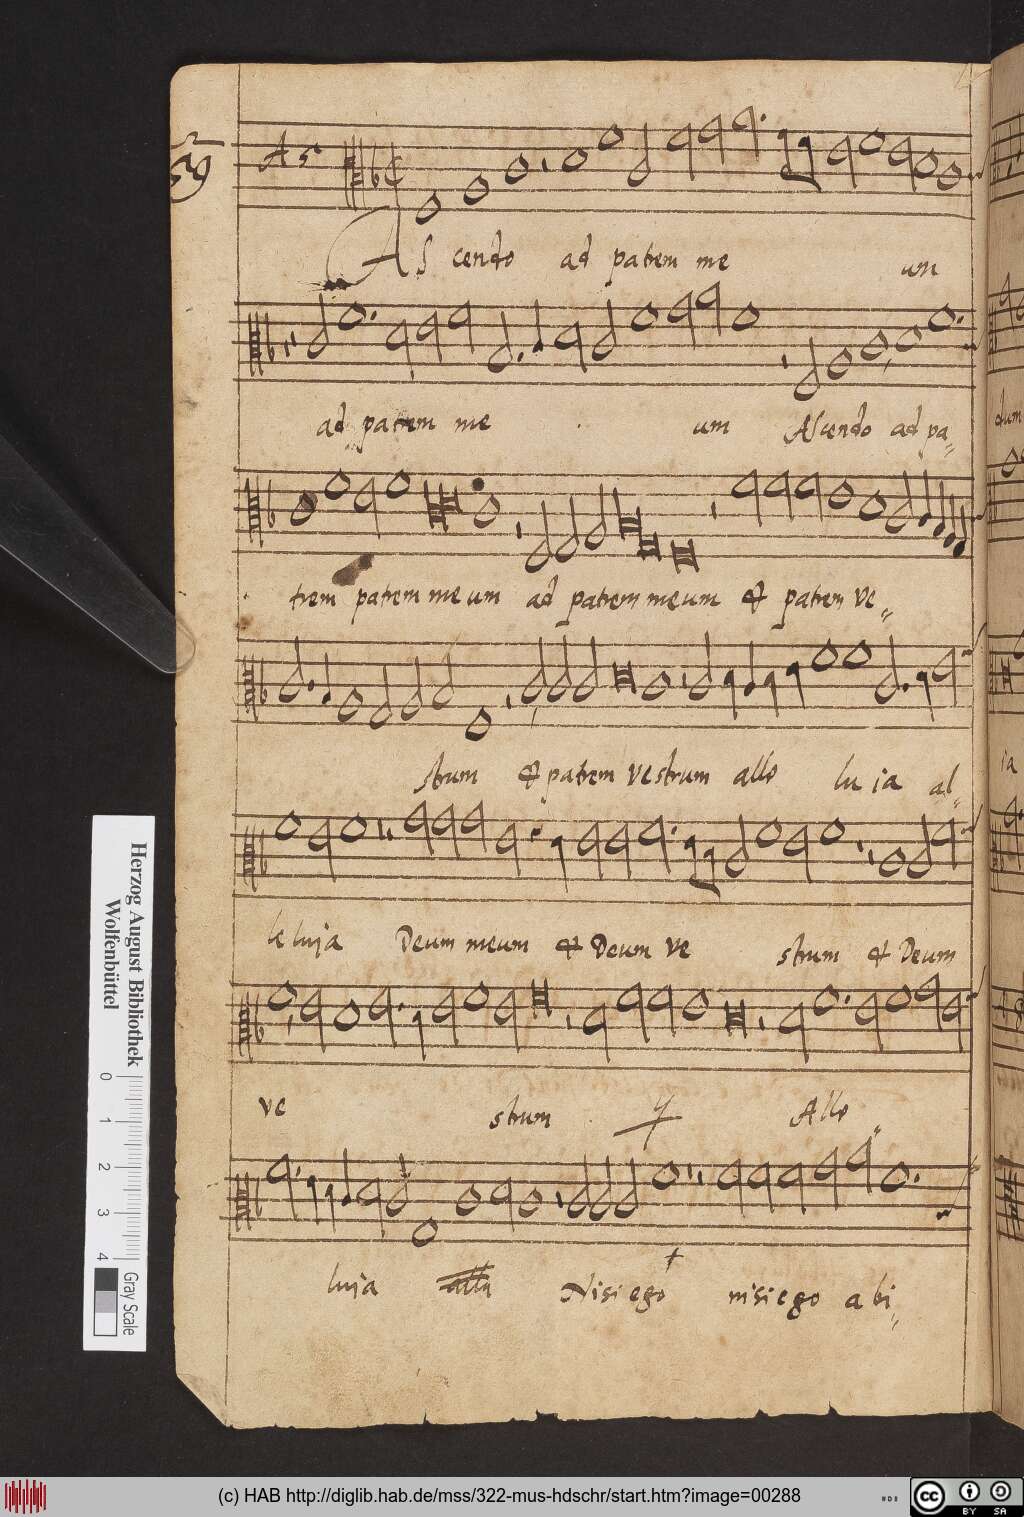 59
A 5
Ascendo ad patrem me um
ad patrem me um Ascendo ad pa=
trem patrem meum ad patrem meum & patrem ve=
strum & patrem vestrum alle lu ia al=
le luja Deum meum & Deum ve strum & Deum
ve strum Alle=
luja Nisi ego nisi ego abi=
dum
ia
Herzog August Bibliothek
Wolfenbüttel
0 1 2 3 4
Gray Scale
(c) HAB http://diglib.hab.de/mss/322-mus-hdschr/start.htm?image=00288
cc BY SA